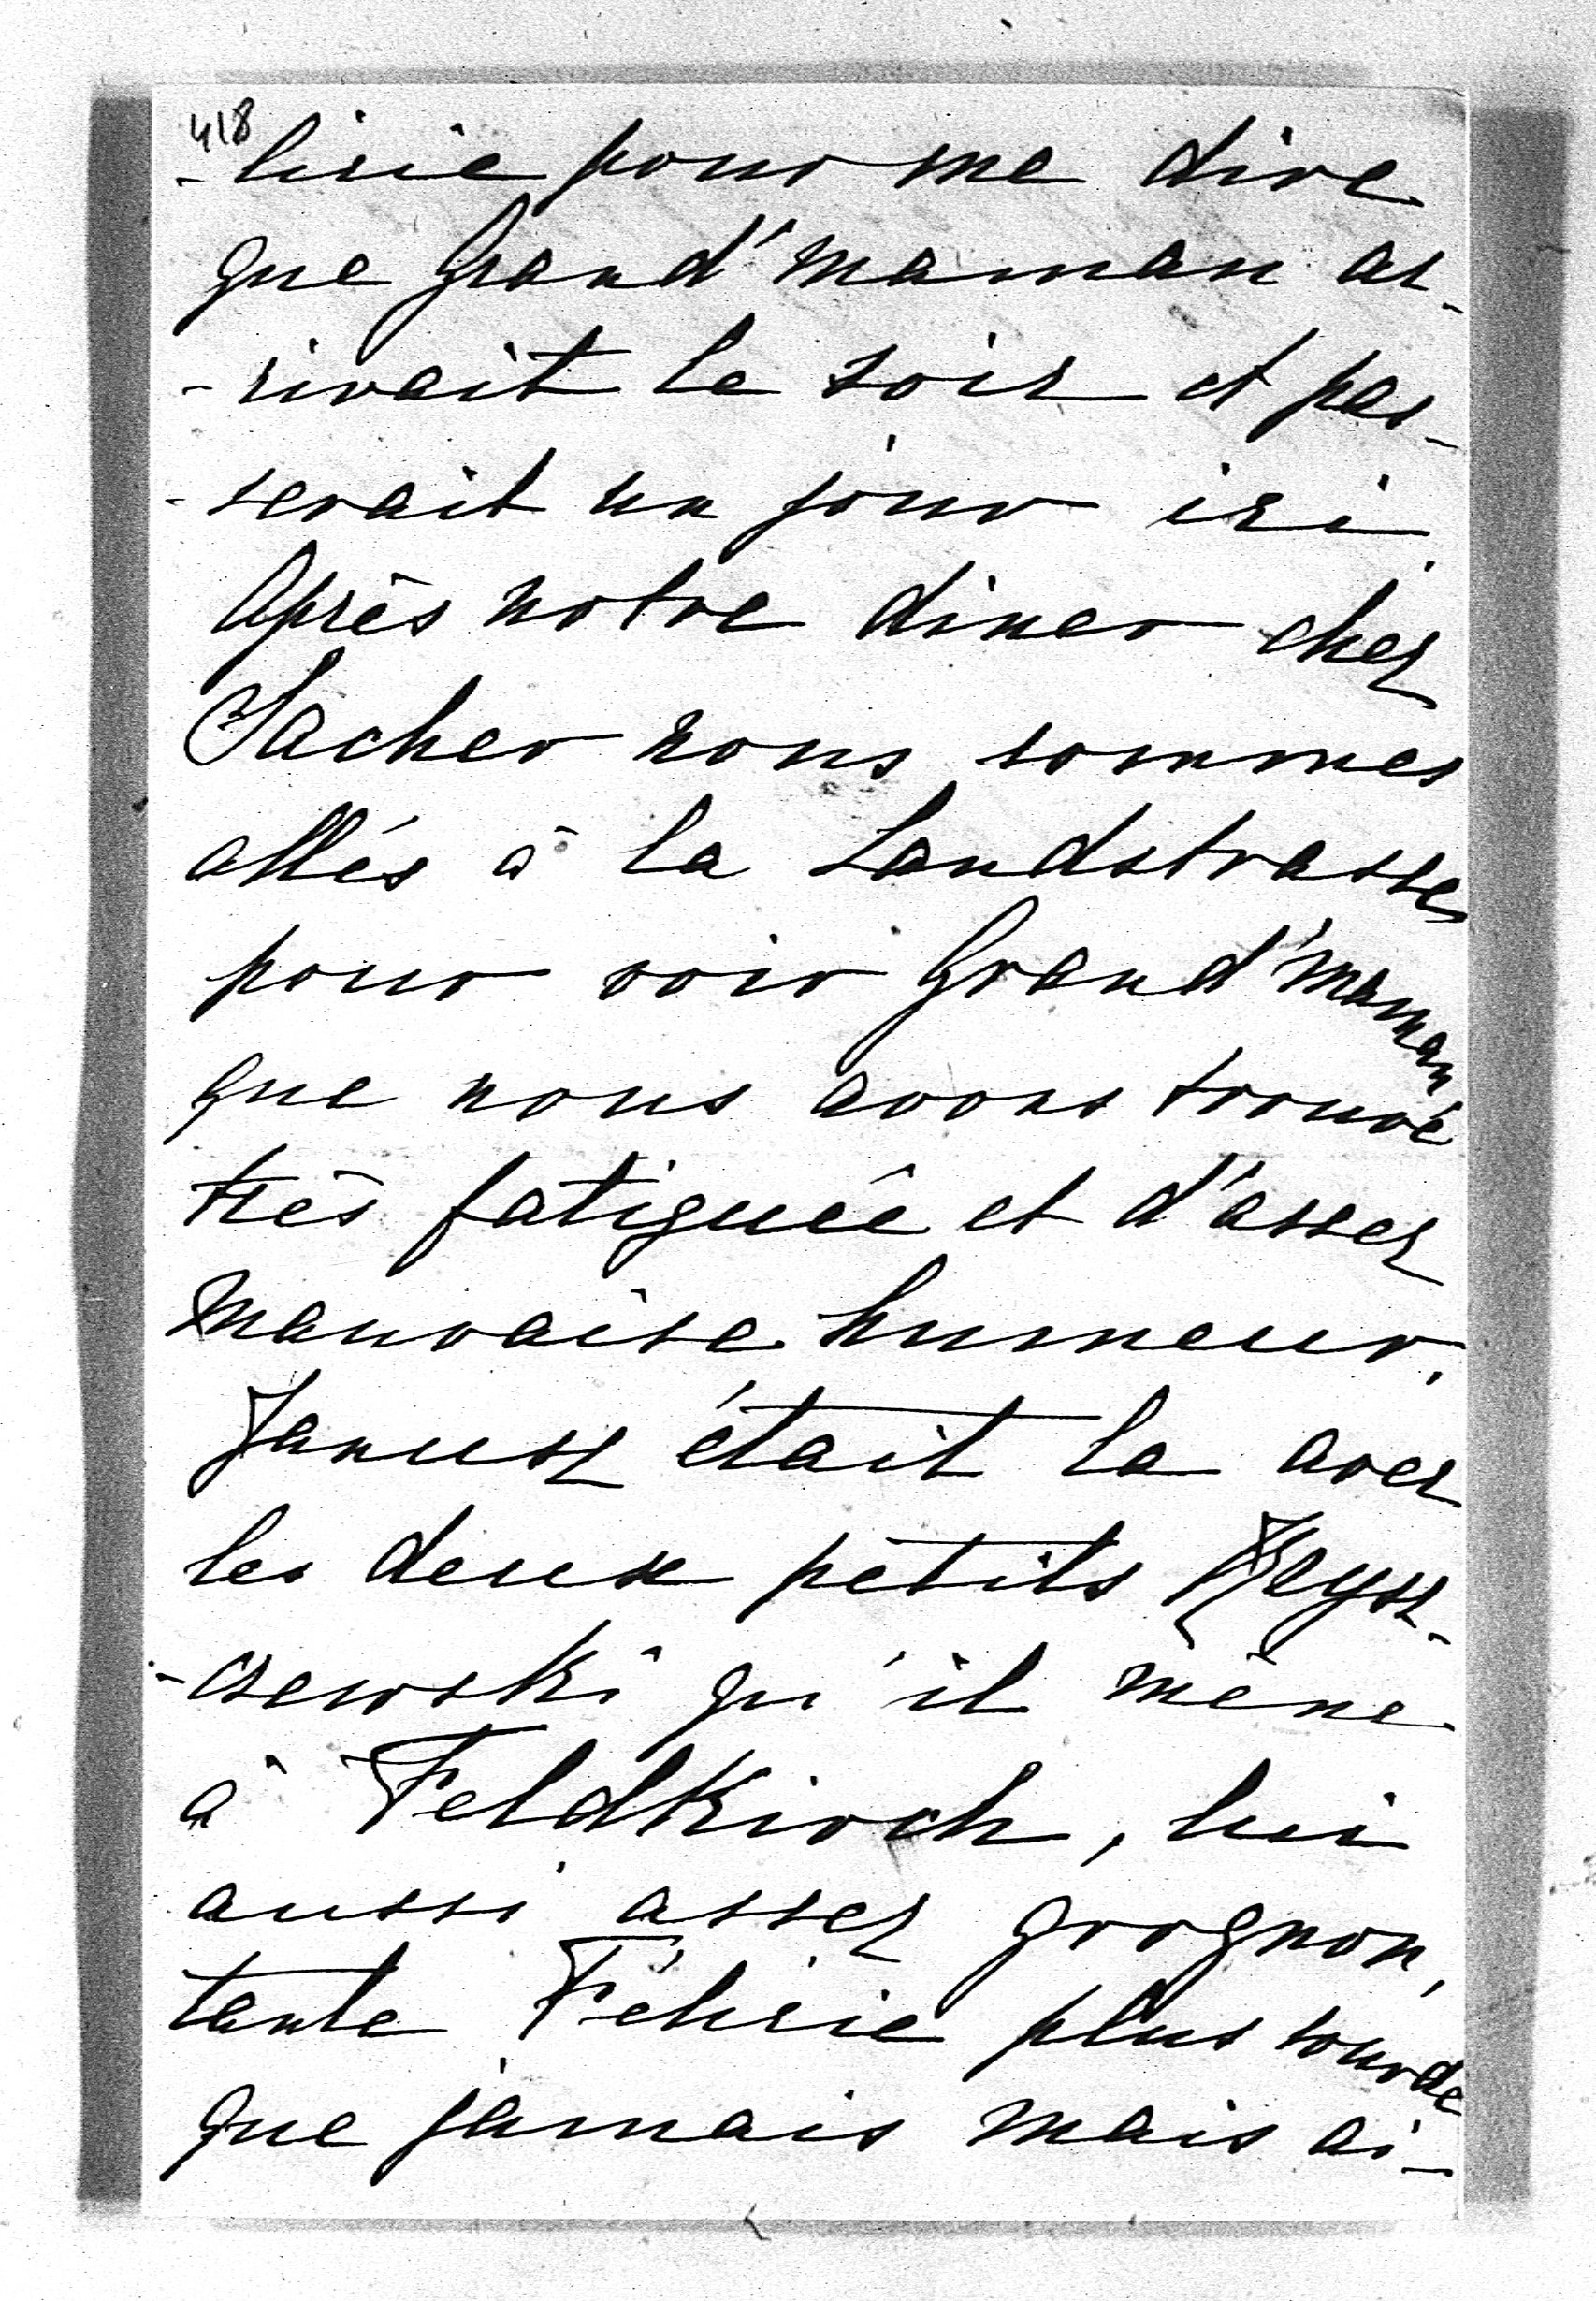 418
-licie pour me dire
que Grand'maman ar-
-rivait le soir et pas-
-serait un jour ici.
Après notre diner chez
Sacher nous sommes
allés à la Landstrasse
pour voir Grand'maman
que nous avons trouvé
très fatiguée et d'assez
mauvaise humeur.
Janusz était la avec
les deux petits Rzysz-
-czewski qu'il mène
à Feldkirch, lui
aussi assez grognon,
tante Félicie plus sourde
que jamais mais ai-